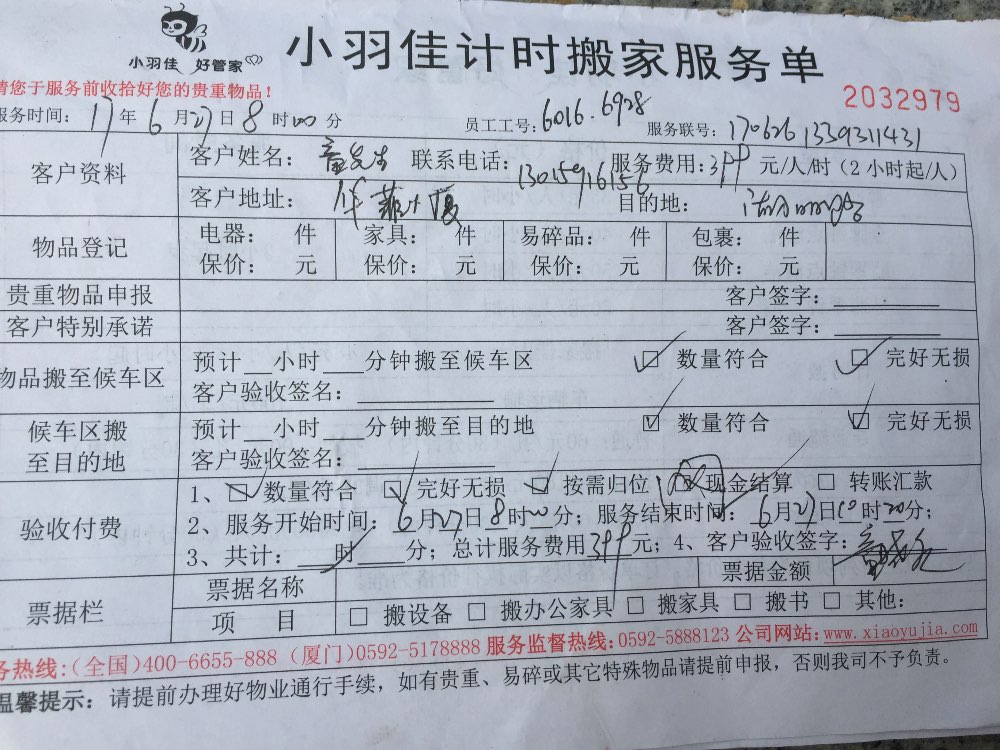 小羽佳 好管家
小羽佳计时搬家服务单
请您于服务前收拾好您的贵重物品！
2032979
服务时间： 17 年 6 月 27 日 8 时 00 分 员工工号：6016.6928 服务联号：170626 1339311431
客户资料
客户姓名：童先生 联系电话：13015916156 服务费用：399 元/人/时（2小时起/人）
客户地址： 目的地：
物品登记
电器： 件 家具： 件 易碎品： 件 包裹： 件
保价： 元 保价： 元 保价： 元 保价： 元
贵重物品申报 客户签字：
客户特别承诺 客户签字：
物品搬至候车区
预计__小时___分钟搬至候车区 ☑ 数量符合 ☑ 完好无损
客户验收签名：
候车区搬
至目的地
预计__小时___分钟搬至目的地 ☑ 数量符合 ☑ 完好无损
客户验收签名：
验收付费
1、☑ 数量符合 ☑ 完好无损 ☑ 按需归位 ☑ 现金结算 □ 转账汇款
2、服务开始时间：6月27日8时00分；服务结束时间：6月27日10时20分；
3、共计：__时___分；总计服务费用399元；4、客户验收签字：
票据栏
票据名称 票据金额
项 目 □ 搬设备 □ 搬办公家具 □ 搬家具 □ 搬书 □ 其他：
务热线：(全国)400-6655-888 (厦门)0592-5178888 服务监督热线：0592-5888123 公司网站：www.xiaoyujia.com
温馨提示：请提前办理好物业通行手续，如有贵重、易碎或其它特殊物品请提前申报，否则我司不予负责。